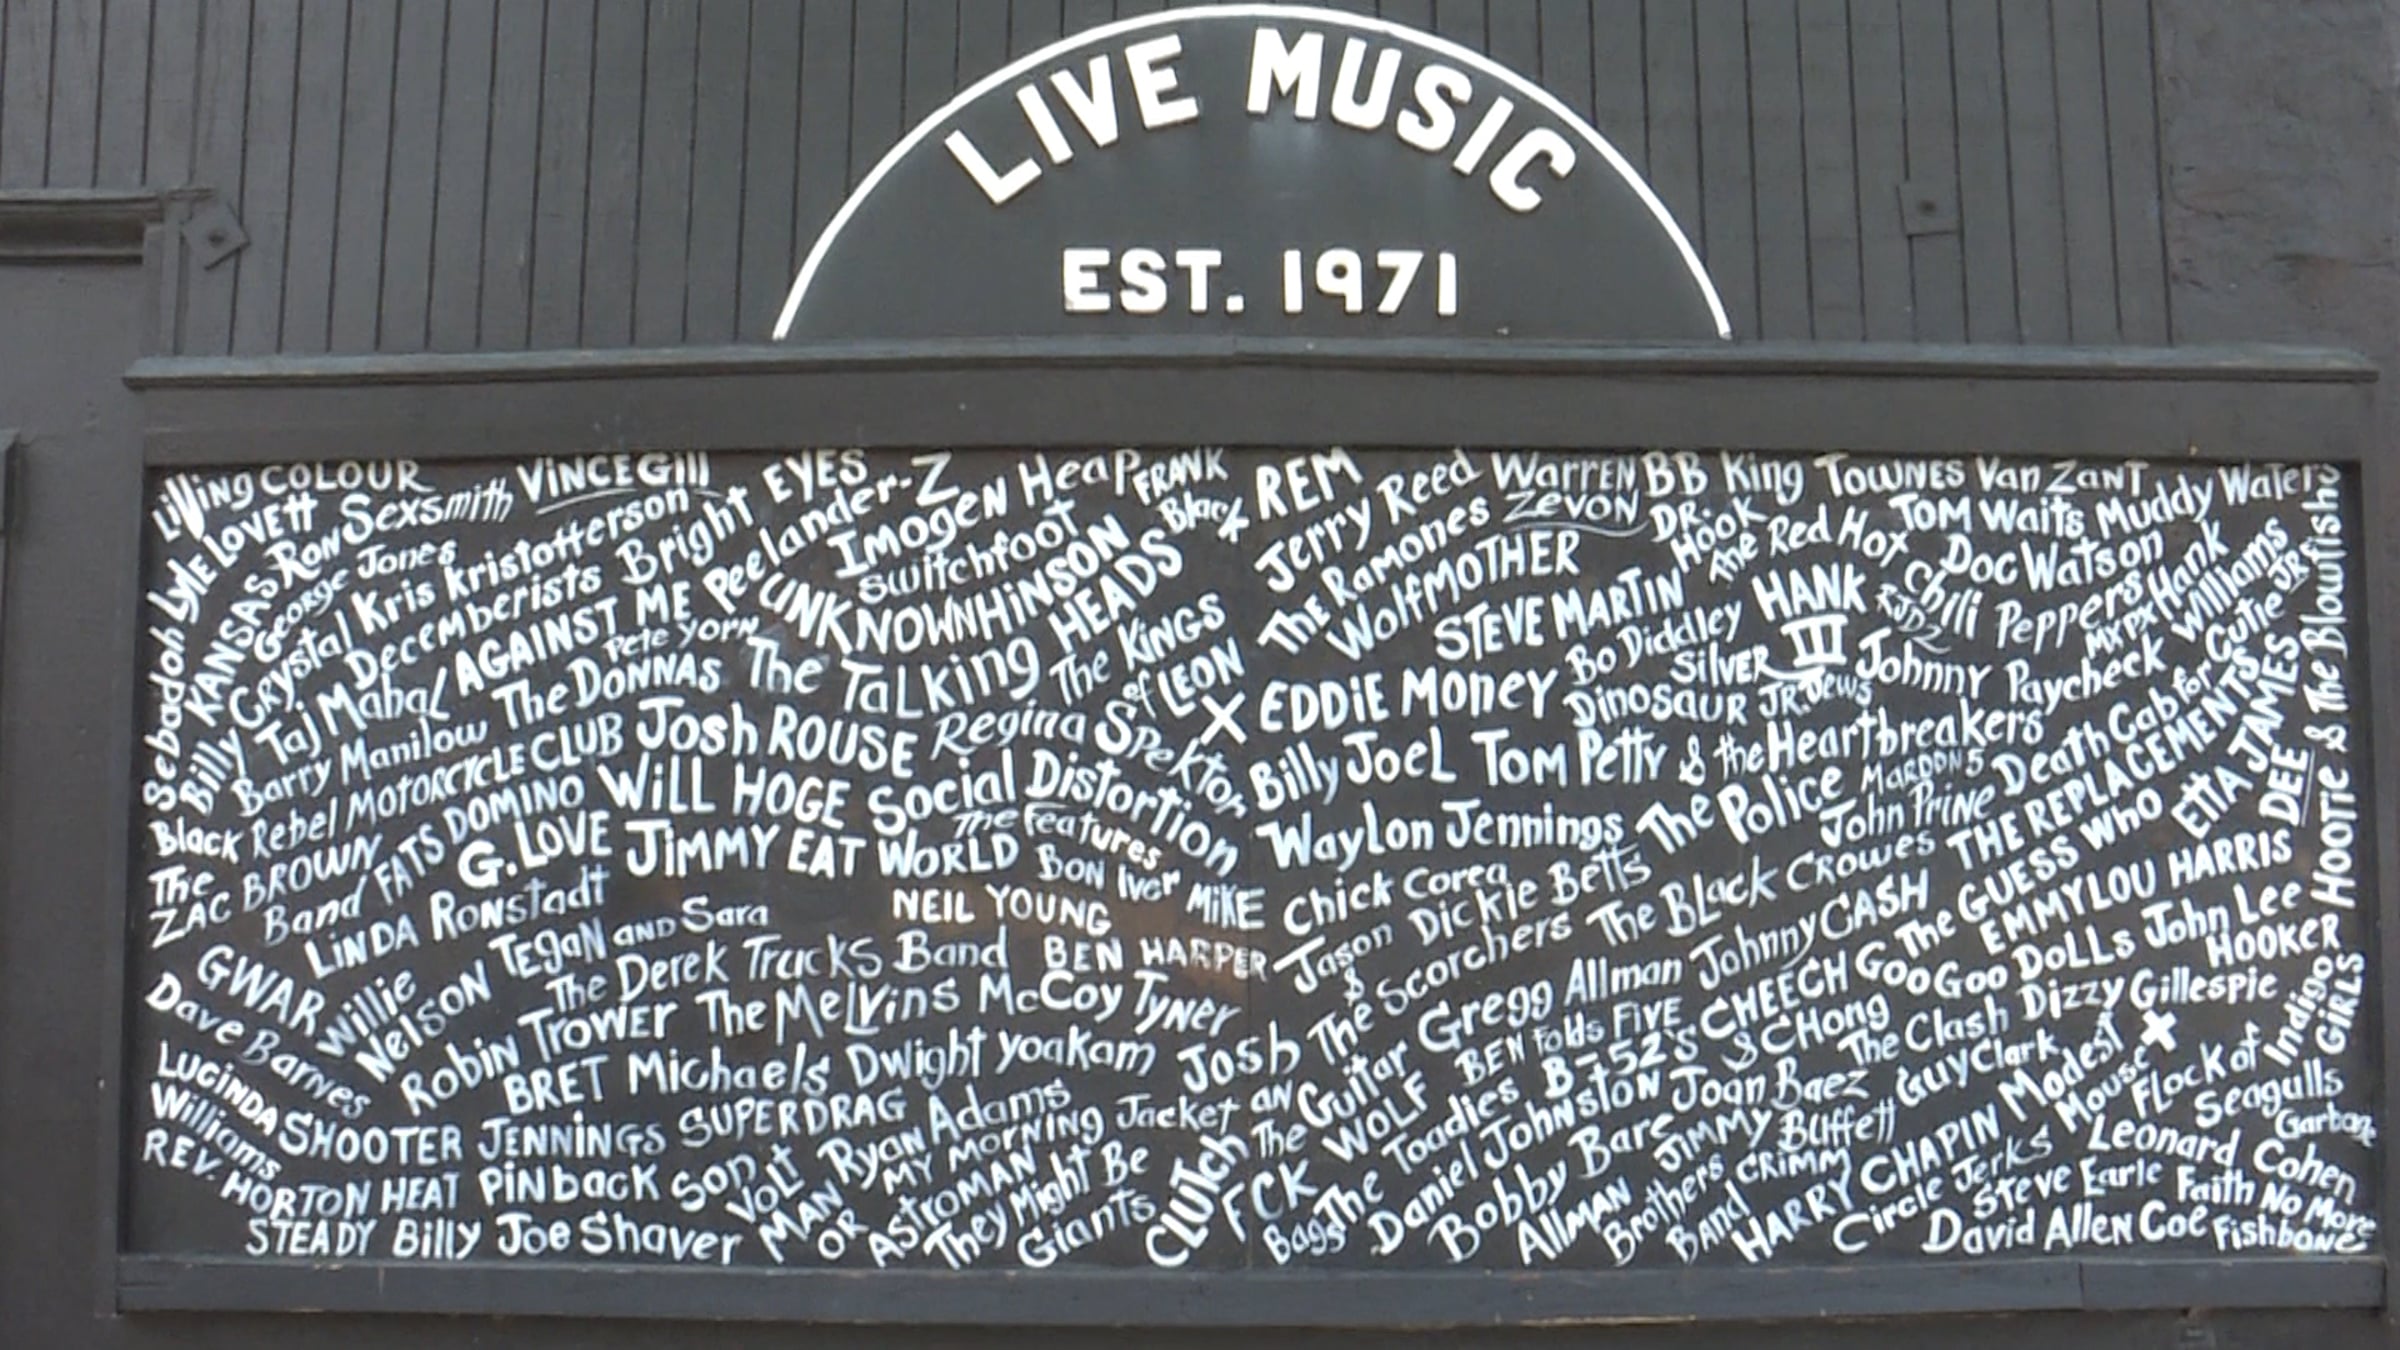 LIVE MUSIC
EST. 1971
Living COLOUR
Lyle LOVETT
Ron Sexsmith
VINCE Gill
KANSAS
George Jones
Sebadoh
Billy Crystal
Kris Kristofferson
Bright EYES
Peelander-Z
Imogen Heap
FRANK Black
Switchfoot
UNKNOWN HiNSON
Taj Mahal
Decemberists
AGAINST ME
Pete Yorn
The TaLking HEADS
The KiNGS of LEON
X
Barry Manilow
The DONNAS
Black Rebel MOTORCYCLE CLUB
Josh ROUSE
Regina Spektor
The ZAC BROWN Band
FATS DOMINO
WiLL HOGE
Social Distortion
G. LOVE
JiMMY EAT WORLD
The Features
BON Iver
MiKE
LiNDA RONstadt
NEIL YOUNG
BEN HARPER
GWAR
Willie NelsoN
TEgaN AND Sara
The Derek Trucks Band
Dave Barnes
Robin TroWER
The MeLvins
McCoy Tyner
LUCiNDA Williams
BRET Michaels
Dwight yoakam
Josh
SHOOTER JENNiNGS
SUPERDRAG
Ryan Adams
MY MORNING Jacket
REV. HORTON HEAT
PiNback
Son Volt
MAN OR ASTROMAN
They Might Be Giants
CLUTCH
STEADY
Billy Joe Shaver
REM
Jerry Reed
WarreN ZEVON
BB King
TOWNES Van ZANT
Muddy Waters
The Ramones
DR. HOOK
TOM Waits
WolfMOTHER
The Red Hot Chili Peppers
Doc Watson
Hank Williams JR.
STEVE MARTIN
HANK III
RJD2
MXPX
Bo Diddley
EDDiE MONEY
SiLVER Jews
DiNOSAUR JR.
Johnny Paycheck
Death Cab for Cutie
Hootie & The Blowfish
Billy JoeL
TOM Petty & the Heartbreakers
MAROON 5
THE REPLACEMENTS
ETTA JAMES
Waylon Jennings
The Police
John Prine
DEE
Chick Corea
Dickie Betts
The BLack CROWES
The GUESS Who
EMMYLOU HARRIS
Jason & The Scorchers
Gregg Allman
Johnny CASH
GOO GOO DOLLS
John Lee HOOKER
an
The Guitar WOLF
BEN Folds FIVE
CHEECH & CHong
The Clash
Dizzy Gillespie
Indigo GiRLS
FCK
The Toadies
B-52's
Joan Baez
Guy Clark
Modest Mouse
Flock of Seagulls
Daniel Johnston
JIMMY Buffett
Garbage
Bags
Bobby Bare
ALLMAN Brothers Band
CRIMM
HARRY CHAPIN
Circle Jerks
Leonard Cohen
Steve Earle
Faith No More
David Allen Coe
Fishbone